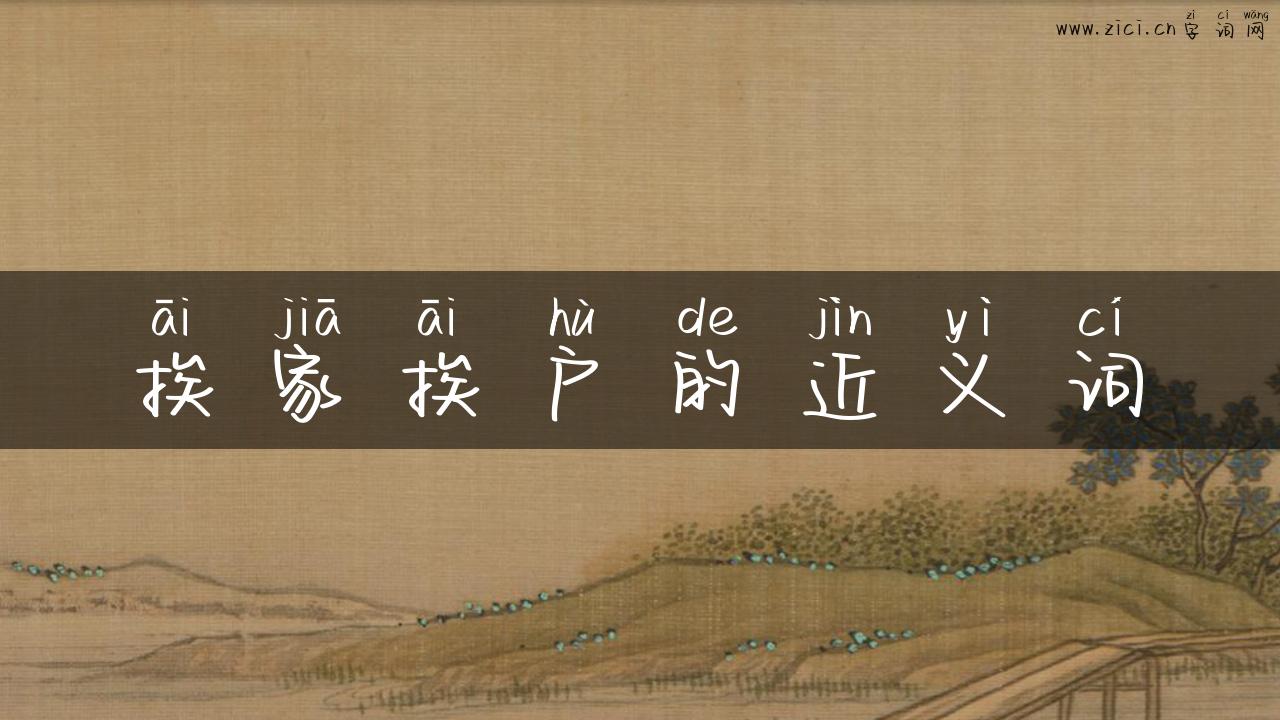 zì cí wǎng
www.zici.cn字词网
āi jiā āi hù de jìn yì cí
挨家挨户的近义词